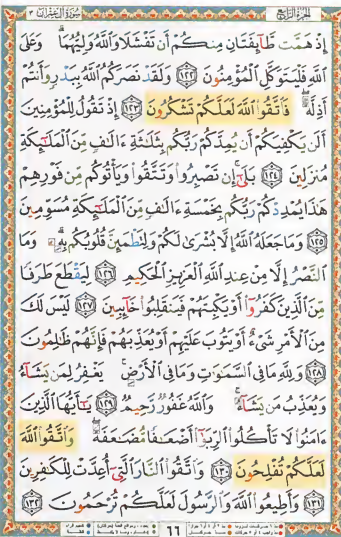 الجزء الرابع
سورة آل عمران ٣
إِذْ هَمَّت طَّآئِفَتَانِ مِنكُمْ أَن تَفْشَلَا وَٱللَّهُ وَلِيُّهُمَا ۗ وَعَلَى
ٱللَّهِ فَلْيَتَوَكَّلِ ٱلْمُؤْمِنُونَ ﴿١٢٢﴾ وَلَقَدْ نَصَرَكُمُ ٱللَّهُ بِبَدْرٍ وَأَنتُمْ
أَذِلَّةٌ ۖ فَٱتَّقُوا۟ ٱللَّهَ لَعَلَّكُمْ تَشْكُرُونَ ﴿١٢٣﴾ إِذْ تَقُولُ لِلْمُؤْمِنِينَ
أَلَن يَكْفِيَكُمْ أَن يُمِدَّكُمْ رَبُّكُم بِثَلَٰثَةِ ءَالَٰفٍ مِّنَ ٱلْمَلَٰٓئِكَةِ
مُنزَلِينَ ﴿١٢٤﴾ بَلَىٰٓ ۚ إِن تَصْبِرُوا۟ وَتَتَّقُوا۟ وَيَأْتُوكُم مِّن فَوْرِهِمْ
هَٰذَا يُمْدِدْكُمْ رَبُّكُم بِخَمْسَةِ ءَالَٰفٍ مِّنَ ٱلْمَلَٰٓئِكَةِ مُسَوِّمِينَ
﴿١٢٥﴾ وَمَا جَعَلَهُ ٱللَّهُ إِلَّا بُشْرَىٰ لَكُمْ وَلِتَطْمَئِنَّ قُلُوبُكُم بِهِۦ ۗ وَمَا
ٱلنَّصْرُ إِلَّا مِنْ عِندِ ٱللَّهِ ٱلْعَزِيزِ ٱلْحَكِيمِ ﴿١٢٦﴾ لِيَقْطَعَ طَرَفًا
مِّنَ ٱلَّذِينَ كَفَرُوٓا۟ أَوْ يَكْبِتَهُمْ فَيَنقَلِبُوا۟ خَآئِبِينَ ﴿١٢٧﴾ لَيْسَ لَكَ
مِنَ ٱلْأَمْرِ شَىْءٌ أَوْ يَتُوبَ عَلَيْهِمْ أَوْ يُعَذِّبَهُمْ فَإِنَّهُمْ ظَٰلِمُونَ
﴿١٢٨﴾ وَلِلَّهِ مَا فِى ٱلسَّمَٰوَٰتِ وَمَا فِى ٱلْأَرْضِ ۚ يَغْفِرُ لِمَن يَشَآءُ
وَيُعَذِّبُ مَن يَشَآءُ ۚ وَٱللَّهُ غَفُورٌ رَّحِيمٌ ﴿١٢٩﴾ يَٰٓأَيُّهَا ٱلَّذِينَ
ءَامَنُوا۟ لَا تَأْكُلُوا۟ ٱلرِّبَوٰٓا۟ أَضْعَٰفًا مُّضَٰعَفَةً ۖ وَٱتَّقُوا۟ ٱللَّهَ
لَعَلَّكُمْ تُفْلِحُونَ ﴿١٣٠﴾ وَٱتَّقُوا۟ ٱلنَّارَ ٱلَّتِىٓ أُعِدَّتْ لِلْكَٰفِرِينَ
﴿١٣١﴾ وَأَطِيعُوا۟ ٱللَّهَ وَٱلرَّسُولَ لَعَلَّكُمْ تُرْحَمُونَ ﴿١٣٢﴾
٦٦